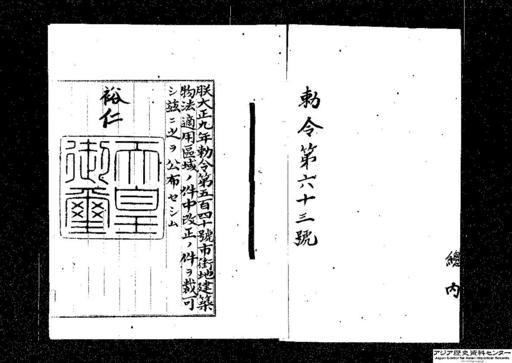 勅令第六十三號
總内
朕大正九年勅令第五百四十號市街地建築
物法適用區域ノ件中改正ノ件ヲ裁可
シ茲ニ之ヲ公布セシム
裕仁
天皇
御璽
アジア歴史資料センター
Japan Center for Asian Historical Records